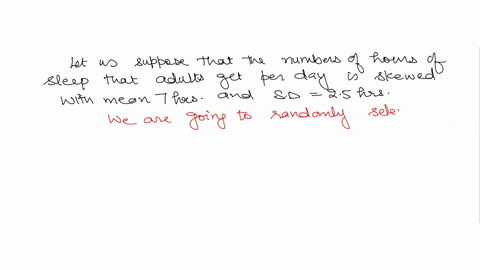 Let us suppose that the numbers of hours of
sleep that adults get per day is skewed
with mean 7 hrs. and S.D = 2.5 hrs.
We are going to randomly sele